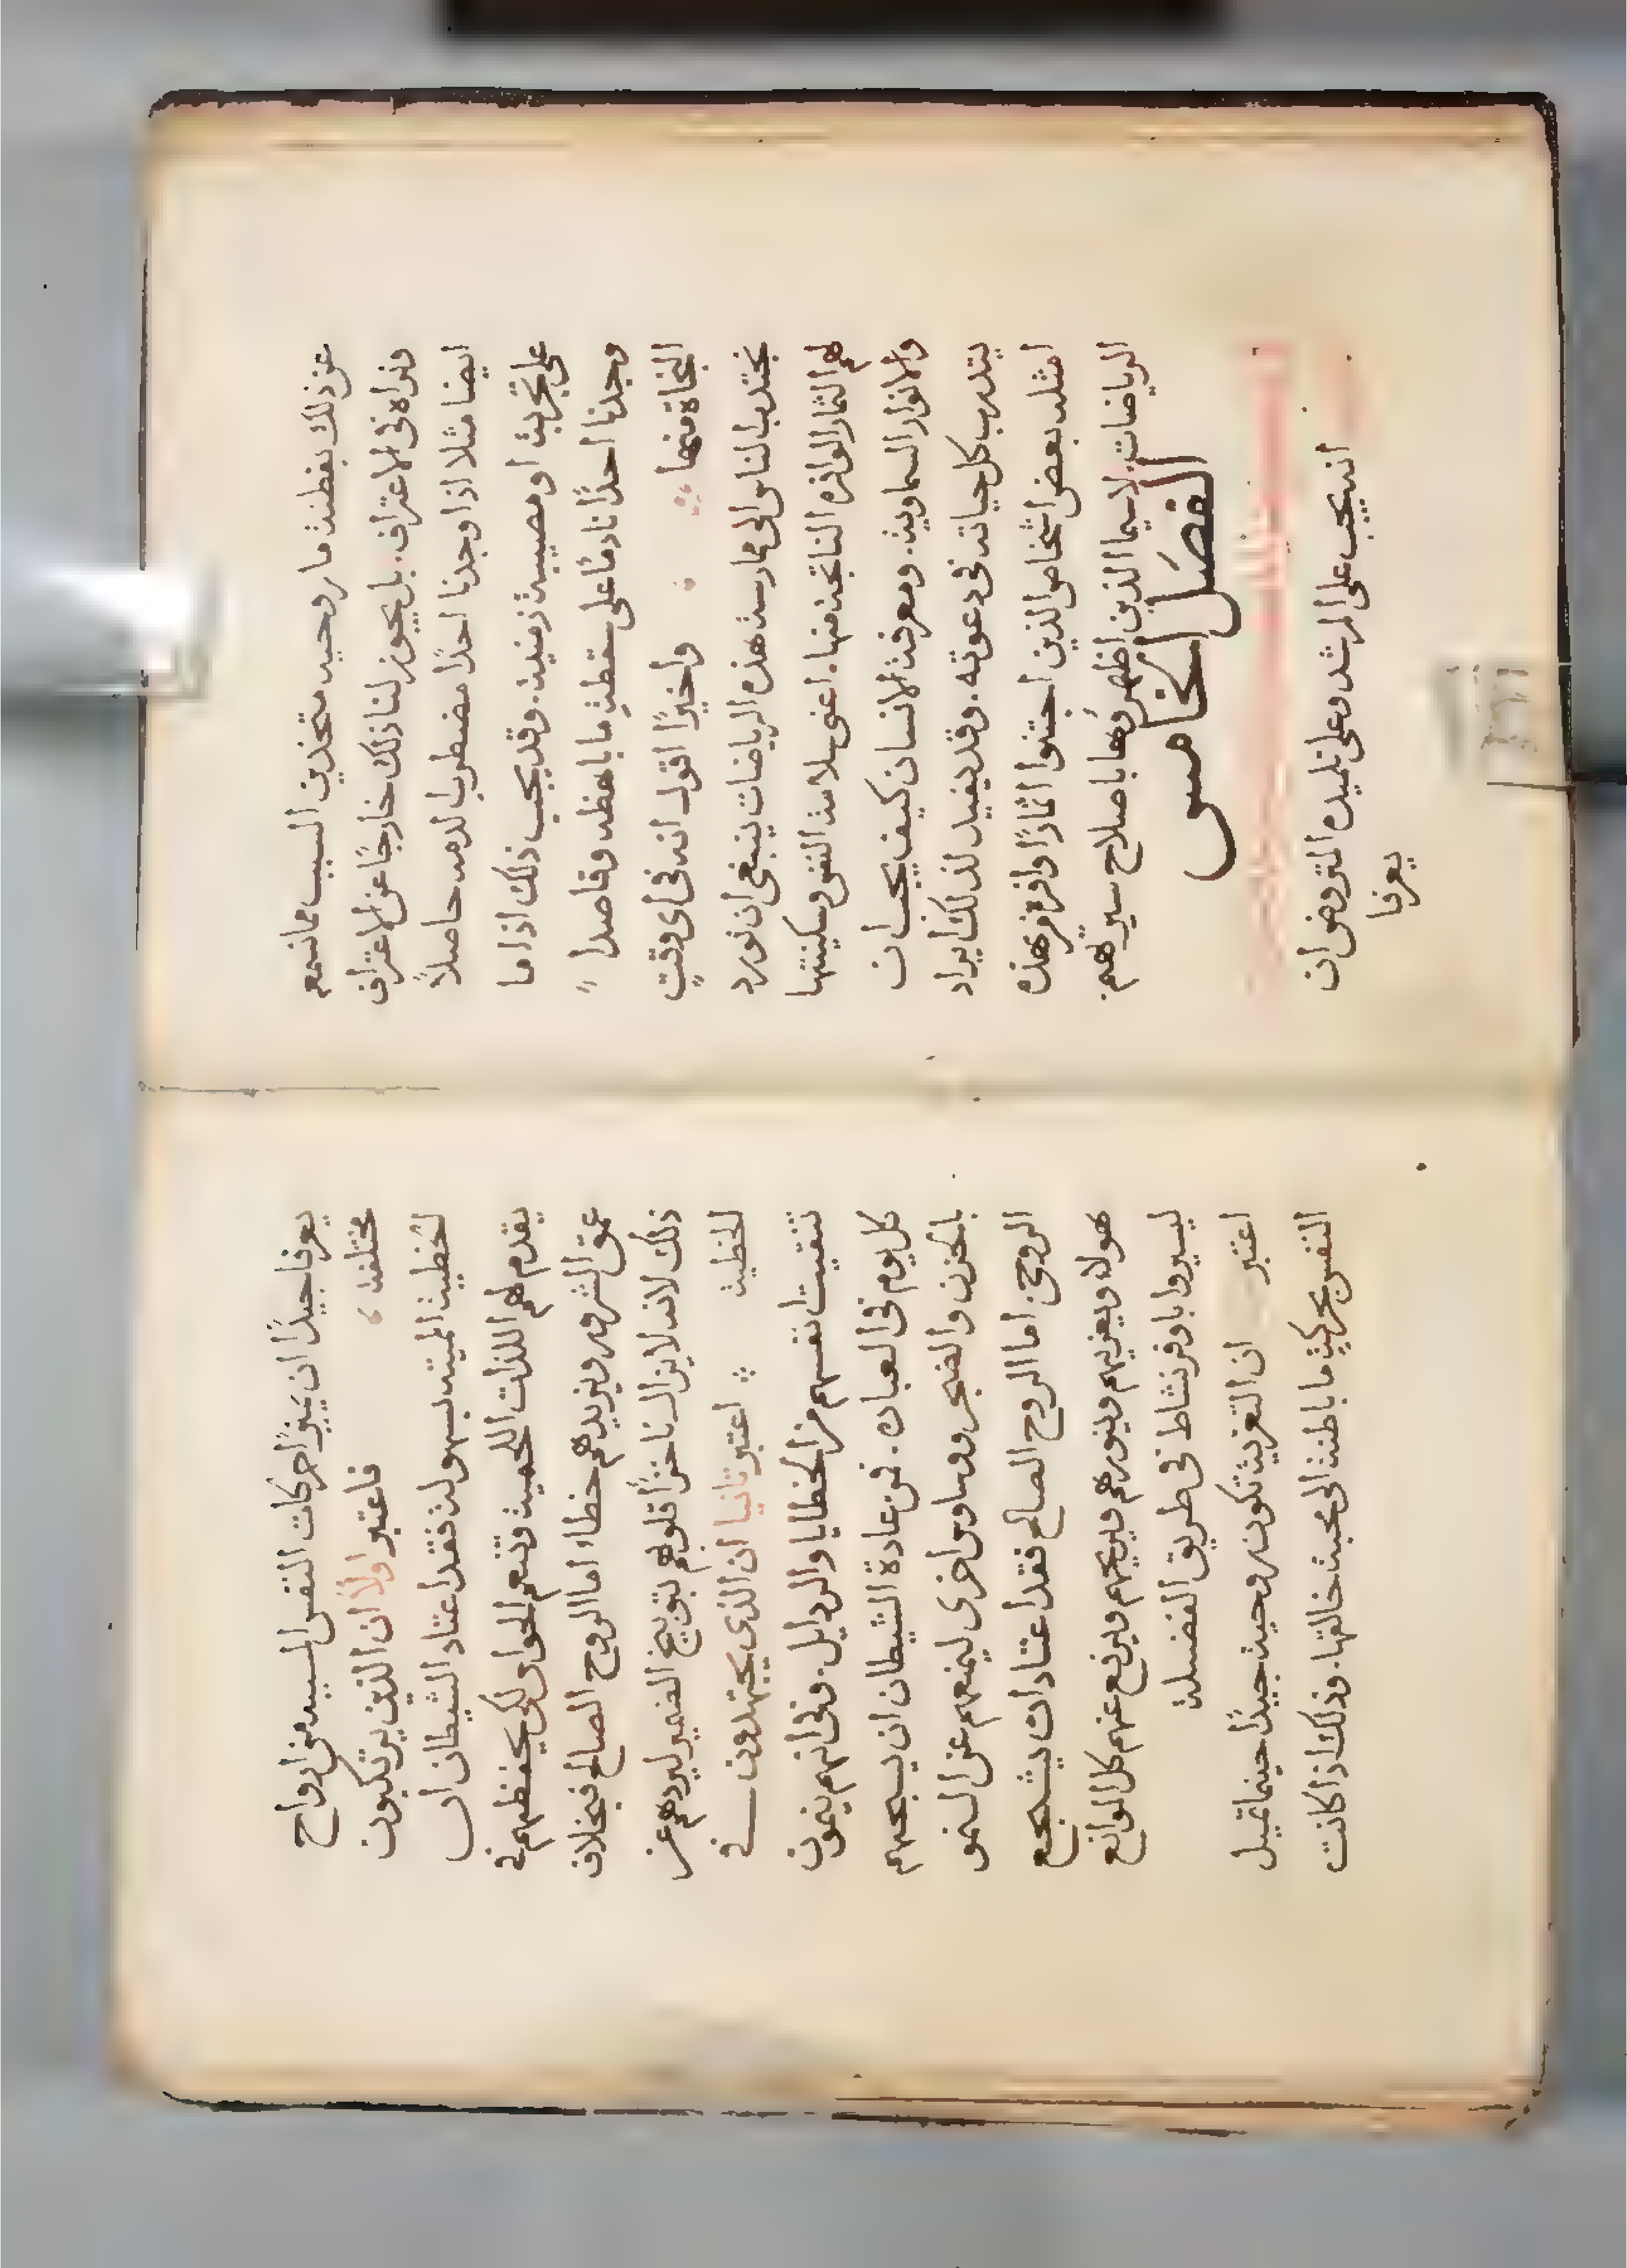 عن ذلك بفطنة ما روحيه متخذين السبب مما نسمعه
ونراه في الاعتراف. بل يجوز لنا ذلك خارجًا عن الاعتراف
ايضا مثلا اذا وجدنا احدًا مضطرب لدمه حاصلاً
على تجربة او مصيبة زمنية. وقد يجب ذلك اذا ما
وجدنا احدًا نادمًا على سقطةٍ ما باهظه وقاصدا
النجاة منها واخيرًا اقول انه في اي وقتٍ
نجتذب الناس الى ممارسة هذه الرياضات ينبغي ان نورد
لهم الثمار الوافره الناتجه منها. اعني سلامة النفس وسكينتها
والانوار السماوية. ومعرفة الانسان كيف يجب ان
يتدرب كل حياته في دعوته. وقد يفيد لذلك ايراد
امثله بعض اشخاص الذين اجتنوا اثمارًا وافرة من هذه
الرياضات. لاسيما الذين اظهروها باصلاح سيرتهم.
الفصل الخامس
انه يجب على المرشد وعلى تلميذه المتروض ان
يعرفا
يعرفا جيدًا ان يميزا حركات النفس المسببه من ارواح
مختلفه فاعتبر اولاً ان الذين يرتكبون
الخطية المميته بسهولة فقد اعتاد الشيطان ان
يقدم لهم اللذات اللحمية وتنعم الحواس لكي يحفظهم في
عمق الشرور ويزيدهم خطاء اما الروح الصالح فبخلاف
ذلك لانه لا يزال ناخزًا قلوبهم بتوبيخ الضمير ليردهم عن
الخطية اعتبر ثانيا ان الذي يجتهدون في
تنقية انفسهم من الخطايا والرذايل. وفي انهم ينمون
كل يوم في العباده. فمن عادة الشيطان ان يسجعهم
بالحزن والضجر ووساوس اخرى ليمنعهم عن السمو
الروحي. اما الروح الصالح فقد اعتاد ان يشجع
هولاء ويعزيهم وينورهم ويريحهم ويرفع عنهم كل الموانع
ليسيروا باوفر نشاط في طريق الفضيلة
اعتبر ان التعزية تكون روحية جيدًا حينما تميل
النفس بحركةٍ ما باطنه الى محبة خالقها. وذلك اذا كانت